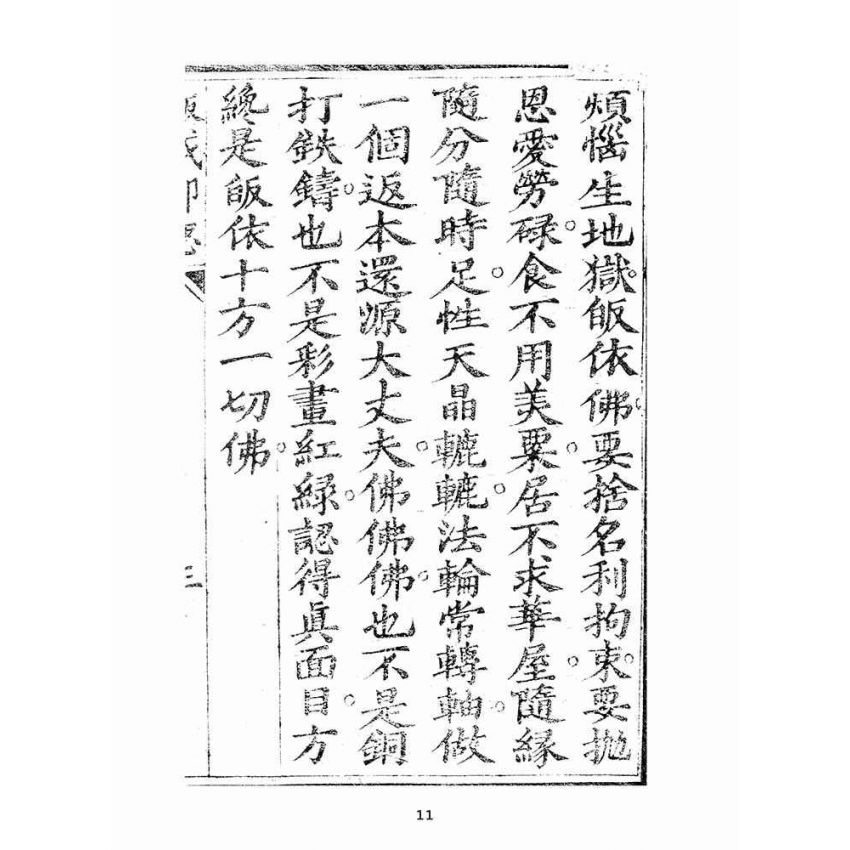 煩惱生地獄。皈依佛。要捨名利拘束。要拋
恩愛勞碌。食不用美粟。居不求華屋。隨緣
隨分隨時足。性天晶轆轆。法輪常轉軸。做
一個返本還源大丈夫。佛佛佛。也不是銅
打鉄鑄。也不是彩畫紅綠。認得眞面目。方
纔是皈依十方一切佛。
三
11